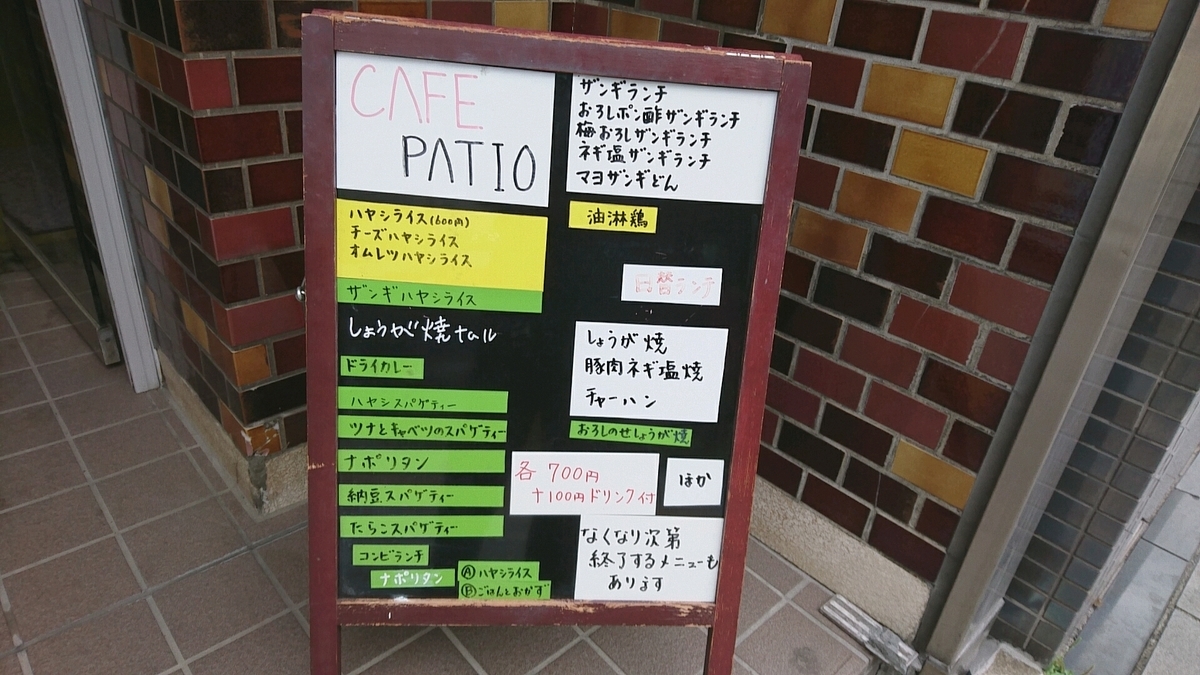 CAFE
PATIO
ハヤシライス(600円)
チーズハヤシライス
オムレツハヤシライス
ザンギハヤシライス
しょうが焼ナポリ
ドライカレー
ハヤシスパゲティー
ツナとキャベツのスパゲティー
ナポリタン
納豆スパゲティー
たらこスパゲティー
コンビランチ
ナポリタン
Ⓐハヤシライス
Ⓑごはんとおかず
ザンギランチ
おろしポン酢ザンギランチ
梅おろしザンギランチ
ネギ塩ザンギランチ
マヨザンギどん
油淋鶏
日替ランチ
しょうが焼
豚肉ネギ塩焼
チャーハン
おろしのせしょうが焼
各700円
+100円ドリンク付
ほか
なくなり次第
終了するメニューも
あります